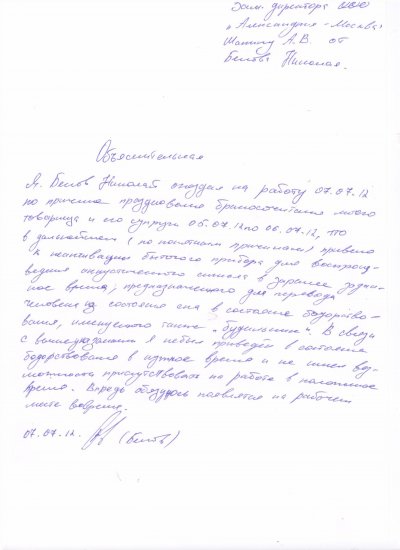 Зам. директора ООО
"Александрия-Москва"
Шапину А.В. от
Белова Николая.
Объяснительная
Я, Белов Николай опоздал на работу 07.07.12
по причине празднования бракосочетания моего
товарища и его супруги 05.07.12 по 06.07.12, что
в дальнейшем (по понятным причинам) привело
к неактивации бытового прибора для воспроиз-
ведения акустического сигнала в заранее задан-
ное время, предназначенного для перевода
человека из состояния сна в состояние бодрство-
вания, именуемого также "будильник". В связи
с вышеуказанным я не был приведён в состояние
бодрствования в нужное время и не имел воз-
можности присутствовать на работе в положенное
время. Впредь обязуюсь появляться на рабочем
месте вовремя.
07.07.12. (Белов)